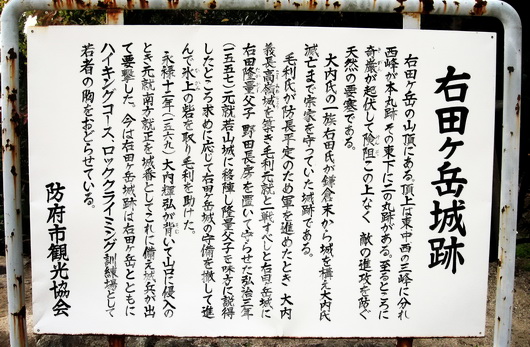 右田ヶ岳城跡
右田ヶ岳の山頂にある。頂上は東中西の三峰に分れ
西峰が本丸跡その東下に二の丸跡がある。至るところに
奇巌が起伏して険阻この上なく、敵の進攻を防ぐ
天然の要塞である。
大内氏の一族右田氏が鎌倉末から城を構え大内氏
滅亡まで宗家を守っていた城跡である。
毛利氏が防長平定のため軍を進めたとき、大内
義長高嶺城を築き毛利元就と一戦すべしと右田岳城に
右田隆量父子野田長房を置いて守らせた弘治三年
(一五五七)元就若山城に移陣し隆量父子を味方に説得
したところ求めに応じて右田ヶ岳城の守備を撤して進
んで氷上の砦を取り毛利を助けた。
永禄十二年(一五六九)大内輝弘が背いて山口に侵入の
とき元就南方就正を城番としてこれに備え城兵が出
て要撃した。今は右田ヶ岳城跡は右田ヶ岳とともに
ハイキングコース、ロッククライミング訓練場として
若者の胸をおどらせている。
防府市観光協会